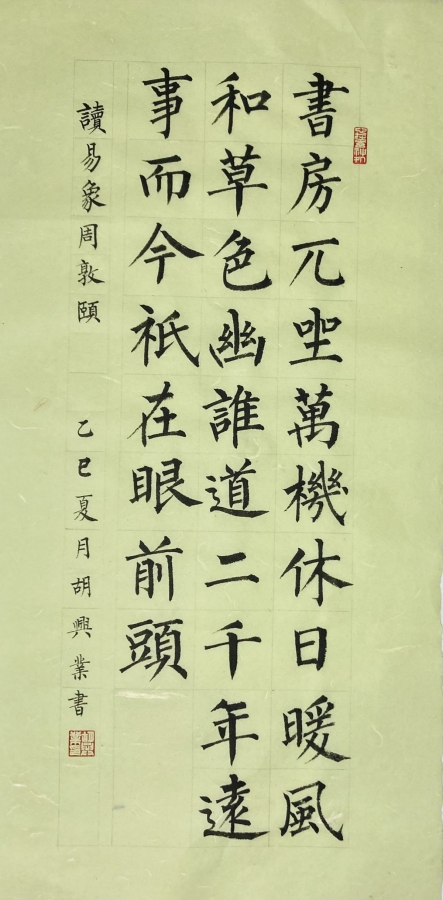 書房兀坐萬機休日暖風
和草色幽誰道二千年遠
事而今祇在眼前頭
讀易象周敦頤
乙巳夏月胡興業書